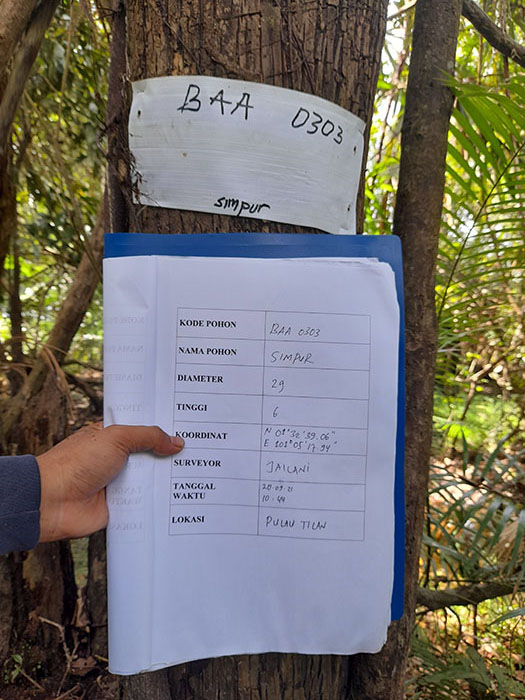 BAA 0303
simpur
KODE POHON BAA 0303
NAMA POHON SIMPUR
DIAMETER 29
TINGGI 6
KOORDINAT N 01° 32' 39.06"
E 101° 05' 17.94"
SURVEYOR JAILANI
TANGGAL
WAKTU
10:44
LOKASI PULAU TILAN